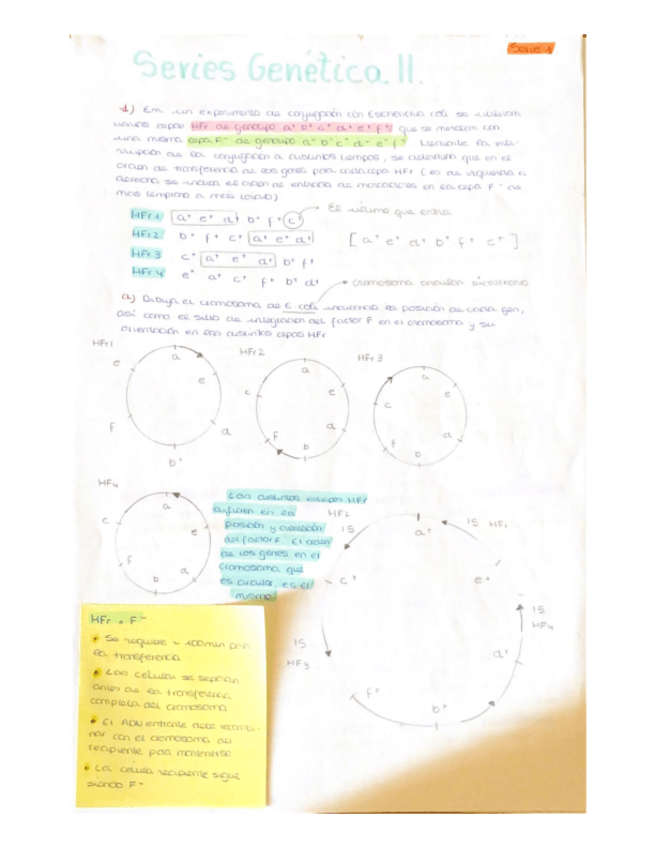 Serie 1
Series Genética II.
1) En un experimento de conjugación con Escherichia coli se utilizan
varias cepas HFr de genotipo a+ b+ c+ d+ e+ f+, que se mezclan con
una misma cepa F- de genotipo a- b- c- d- e- f-. Mediante la inte-
rrupción de la conjugación a distintos tiempos, se determina que en el
orden de transferencia de los genes para cada cepa HFr (es de izquierda a
derecha se indica el orden de entrada de marcadores en la cepa F- de
más temprano a más tarde)
HFr1 a+ e+ d+ b+ f+ c+ El último que entra
HFr2 b+ f+ c+ a+ e+ d+ [a+ e+ d+ b+ f+ c+]
HFr3 c+ a+ e+ d+ b+ f+
HFr4 e+ a+ c+ f+ b+ d+
cromosoma circular bicatenario
a) Dibuja el cromosoma de E coli indicando la posición de cada gen,
así como el sitio de integración del factor F en el cromosoma y su
orientación en las distintas cepas HFr
HFr1 HFr2 HFr3
a e d b+ f c
a e d b f c
a e d b f c
HFr4
a e d b f c
Las distintas cepas HFr
difieren en la
posición y orientación
del factor F. El orden
de los genes en el
cromosoma que
es circular, es el
mismo
HFr2 IS
IS HFr1
a+
c+
e+
IS HFr4
IS
HFr3
d+
f+
b+
HFr x F-
Se requiere ~ 100min para
la transferencia
Las células se separan
antes de la transferencia
completa del cromosoma
El ADN entrante debe recombi-
nar con el cromosoma del
recipiente para mantenerse
La célula recipiente sigue
siendo F-